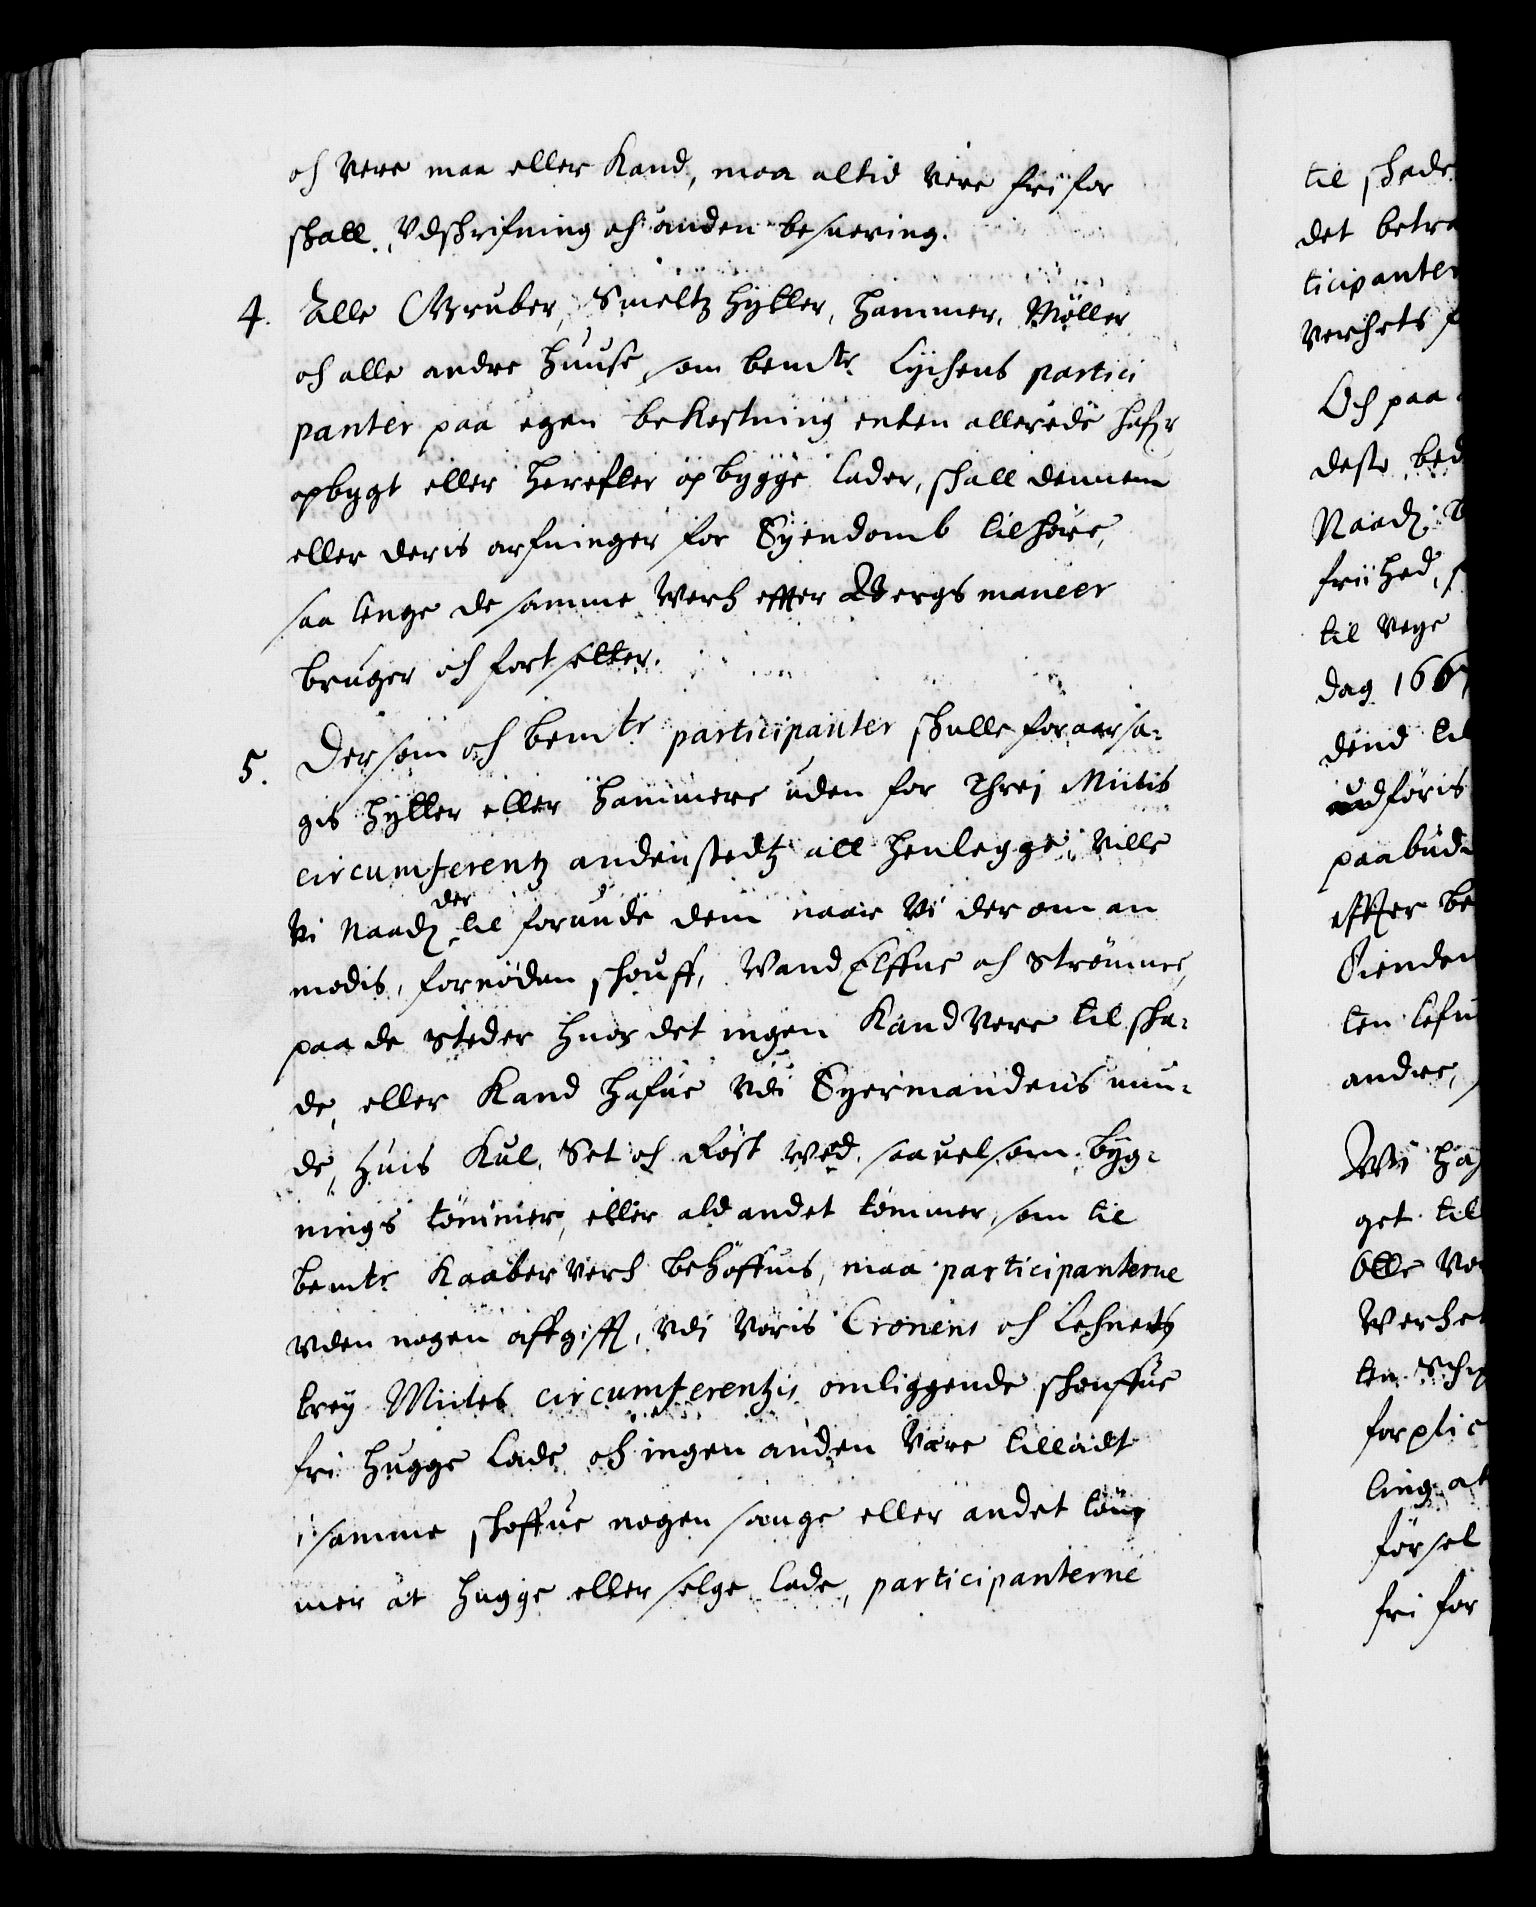 och Vere maa eller Kand, maa altid Vere frii for
skatt, Vdskrifning och anden besuering.
4. Alle Gruber, Smeltz hytter, hammer, Møller
och alle andre huuse, som bemte Lychens partici
panter paa egen bekostning enten allerede hafr
opbygt eller herefter opbygge lader, skall dennem
eller deris arfuinger for Eyendomb tilhøre,
saa lenge de samme Werch effter Bergs maneer
bruger och fortsetter.
5. Dersom och bemte participanter skulle foraarsa-
gis hytter eller hammere uden for Threj Miilis
circumferentz andenstedtz att henlegge, Ville
Vi Naadl der til forunde dem naar Vi derom an
modis, fornøden skouff, Wand Elffue och Strømme,
paa de steder huor det ingen Kand Vere til ska-
de, eller Kand hafue Vdi Eyermandens min-
de, huis Kul, Set och Røst Wed, saauelsom byg-
nings tømmer, eller ald andet tømmer, som til
bemte Kaaberverch behøffuis, maa participanterne
vden nogen affgifft, Vdj Voris Cronens och Lehnetz
trey Miiles circumferentzis omliggende skouffue
fri hugge lade och ingen anden Være tilladt
i samme skoffue nogen sauge eller andet tøm
mer at hugge eller selge lade, participanterne
til skade
det betra
ticipanter
Verchets
Och paa
deste bed
Naadl
friihed,
til Veye
dag 166
dend til
udføris
paabud
effter be
Øienden
ten lefu
andre,
Wi ha
get till
Olle Vo
Werchet
ten Schi
forplic
ling at
førsel
fri for